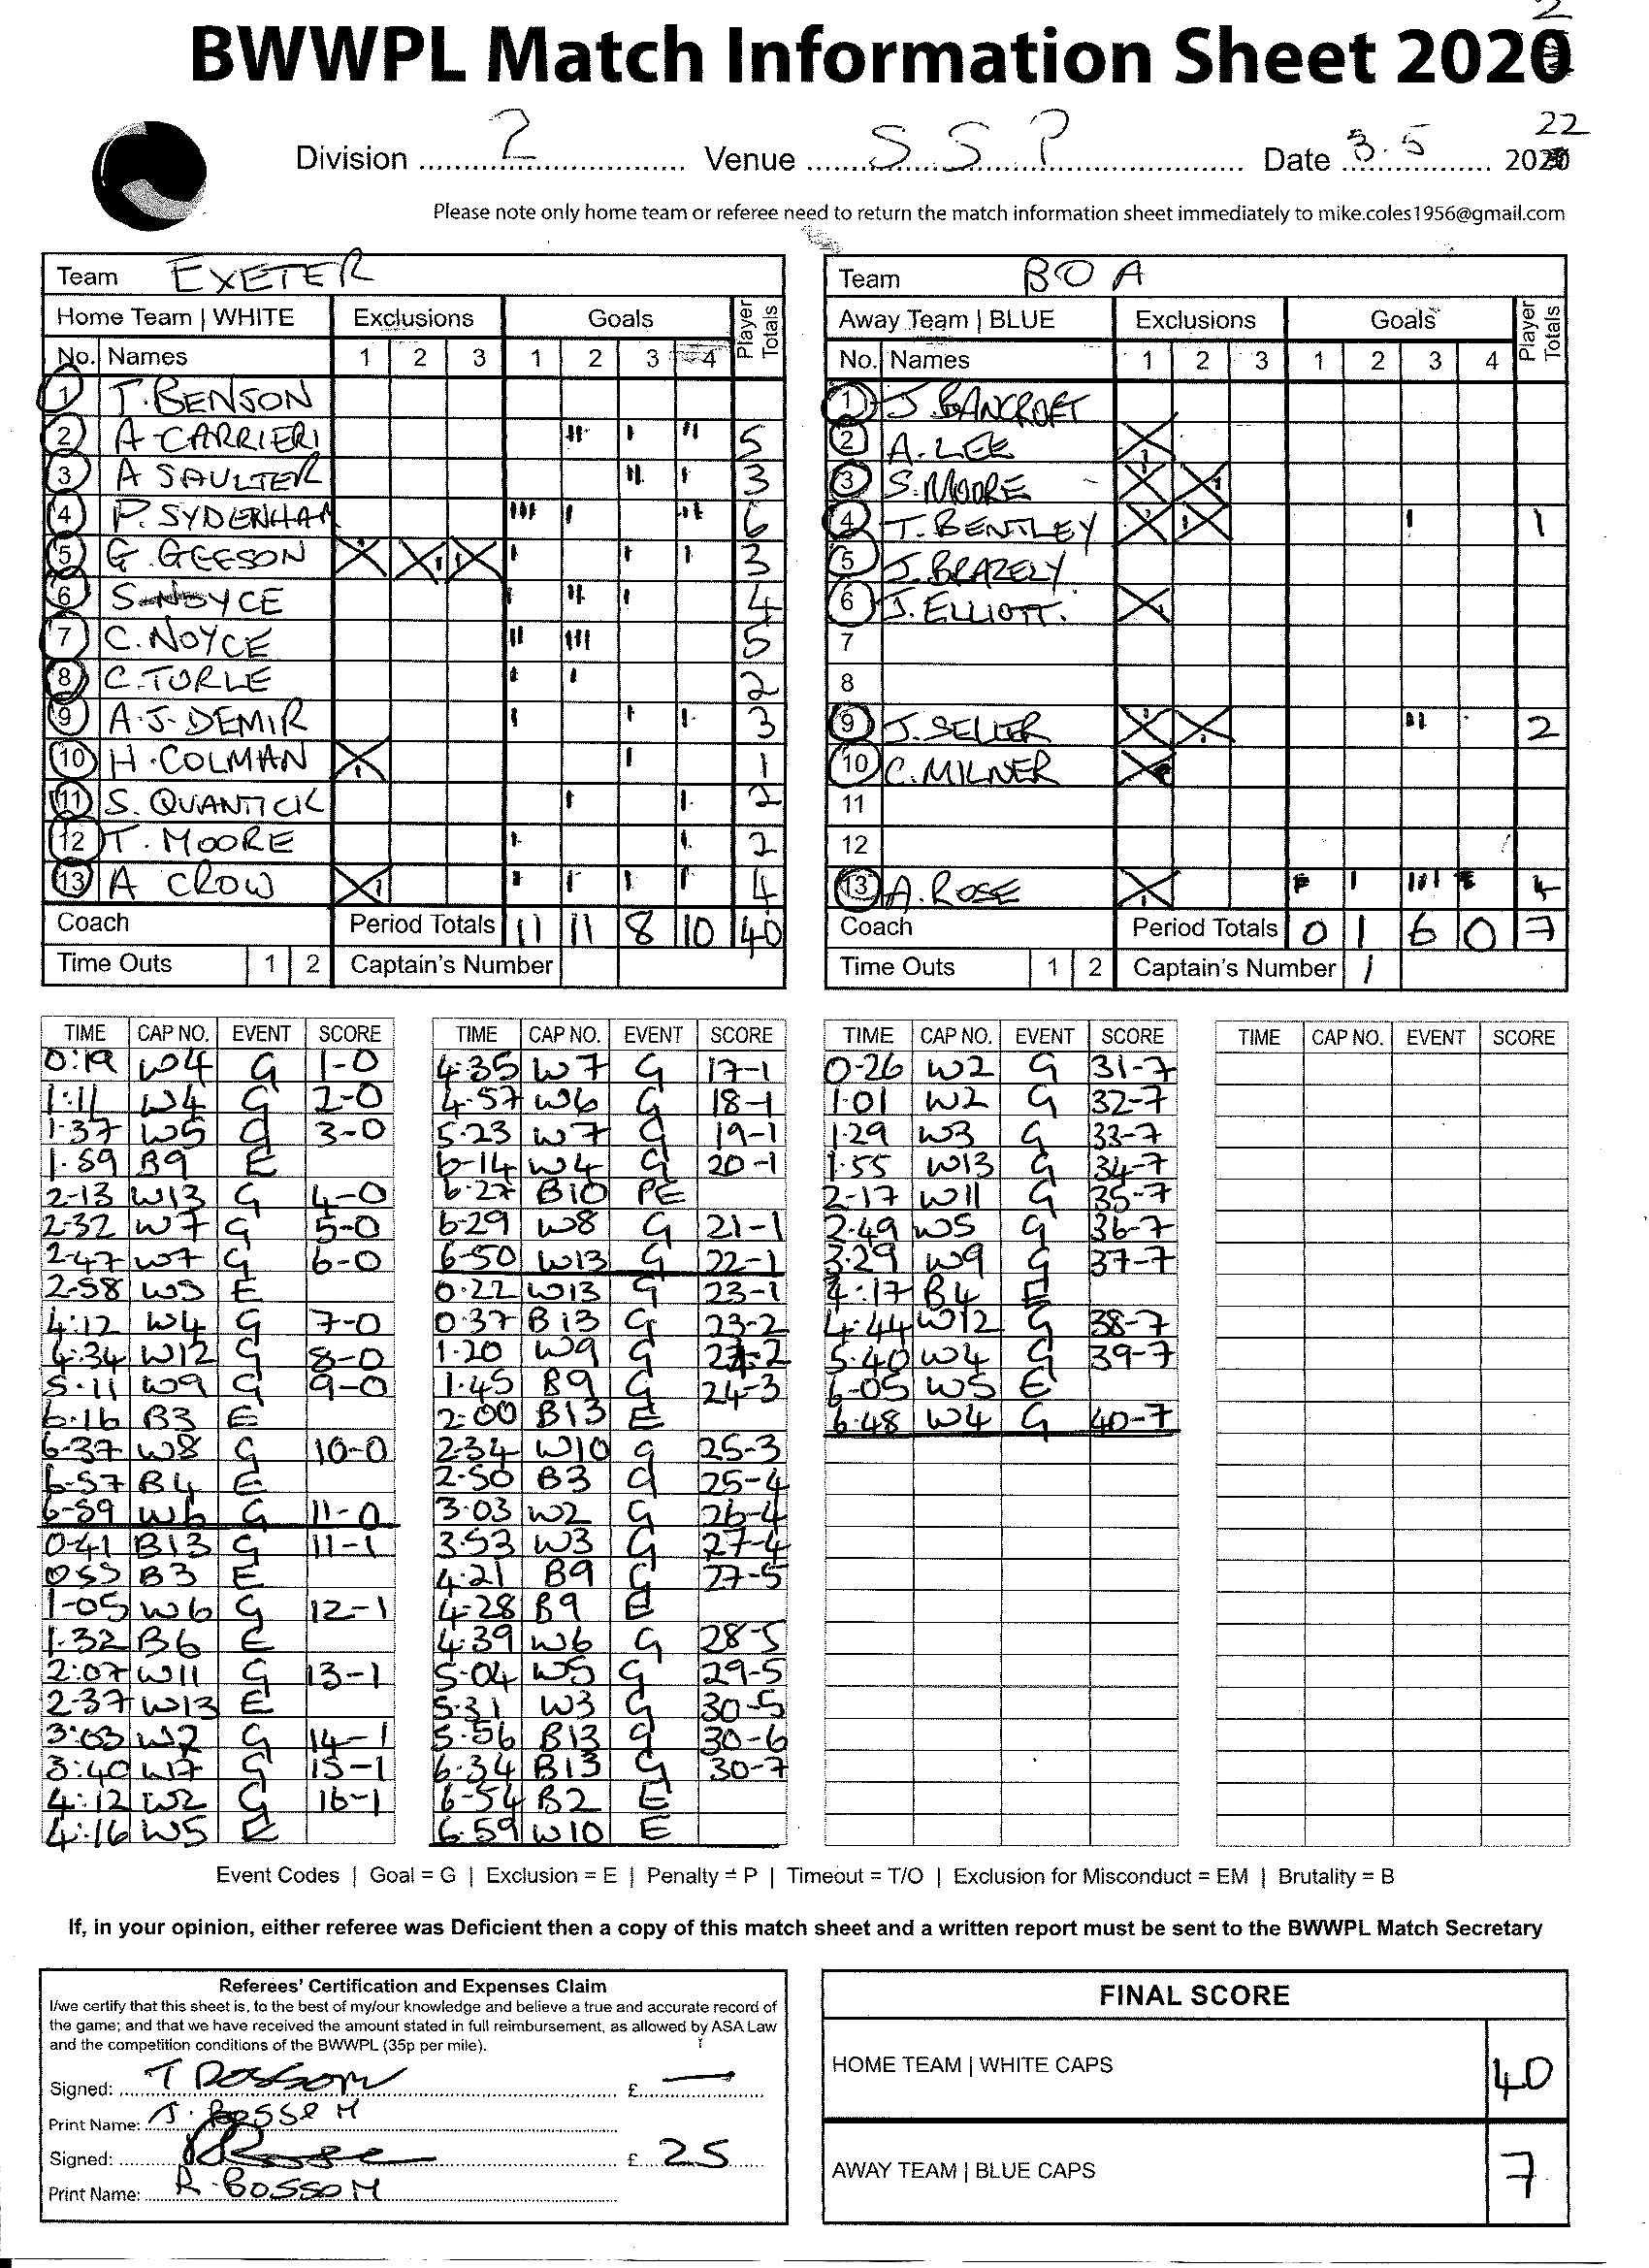 BWWPL Match Information Sheet 2020 2
Division 2 Venue S S P Date 3.5 2020 22
Please note only home team or referee need to return the match information sheet immediately to mike.coles1956@gmail.com
Team EXETER
Home Team | WHITE Exclusions Goals Player Totals
No. Names 1 2 3 1 2 3 4
1 T. BENSON
2 A CARRIERI 5
3 A SAULTER 3
4 P. SYDENHAM 6
5 G. GEESON 3
6 S NOYCE 4
7 C. NOYCE 5
8 C. TURLE 2
9 A.J. DEMIR 3
10 H. COLMAN 1
11 S. QUANTICK 2
12 T. MOORE 2
13 A CROW 4
Coach Period Totals 11 11 8 10 40
Time Outs 1 2 Captain's Number
Team BOA
Away Team | BLUE Exclusions Goals Player Totals
No. Names 1 2 3 1 2 3 4
1 J. BANCROFT
2 A. LEE
3 S. MOORE
4 T. BENTLEY 1
5 J. BRAZELY
6 J. ELLIOTT.
7
8
9 J. SELLER 2
10 C. MILNER
11
12
13 A. ROSE 4
Coach Period Totals 0 1 6 0 7
Time Outs 1 2 Captain's Number 1
TIME CAP NO. EVENT SCORE
0:19 W4 G 1-0
1:11 W4 G 2-0
1.37 W5 G 3-0
1.59 B9 E
2-13 W13 G 4-0
2-32 W7 G 5-0
2-47 W7 G 6-0
2-58 W5 E
4:12 W4 G 7-0
4.34 W12 G 8-0
5.11 W9 G 9-0
6.16 B3 E
6-37 W8 G 10-0
6-57 B4 E
6-59 W6 G 11-0
0-41 B13 G 11-1
055 B3 E
1-05 W6 G 12-1
1.32 B6 E
2:07 W11 G 13-1
2-37 W13 E
3:03 W2 G 14-1
3:40 W7 G 15-1
4:12 W2 G 16-1
4:16 W5 E
TIME CAP NO. EVENT SCORE
4:35 W7 G 17-1
4-57 W6 G 18-1
5.23 W7 G 19-1
6-14 W4 G 20-1
6.27 B10 PE
6-29 W8 G 21-1
6-50 W13 G 22-1
0.22 W13 G 23-1
0.37 B13 G 23-2
1.20 W9 G 24-2
1.45 B9 G 24-3
2:00 B13 E
2.34 W10 G 25-3
2.50 B3 G 25-4
3.03 W2 G 26-4
3.53 W3 G 27-4
4.21 B9 G 27-5
4-28 B9 E
4.39 W6 G 28-5
5-04 W5 G 29-5
5.31 W3 G 30-5
5.56 B13 G 30-6
6.34 B13 G 30-7
6-54 B2 E
6.59 W10 E
TIME CAP NO. EVENT SCORE
0-26 W2 G 31-7
1.01 W2 G 32-7
1.29 W3 G 33-7
1.55 W13 G 34-7
2-17 W11 G 35-7
2.49 W5 G 36-7
3.29 W9 G 37-7
4:17 B4 E
4:44 W12 G 38-7
5.40 W4 G 39-7
6-05 W5 E
6.48 W4 G 40-7
TIME CAP NO. EVENT SCORE
Event Codes | Goal = G | Exclusion = E | Penalty = P | Timeout = T/O | Exclusion for Misconduct = EM | Brutality = B
If, in your opinion, either referee was Deficient then a copy of this match sheet and a written report must be sent to the BWWPL Match Secretary
Referees' Certification and Expenses Claim
I/we certify that this sheet is, to the best of my/our knowledge and believe a true and accurate record of
the game; and that we have received the amount stated in full reimbursement, as allowed by ASA Law
and the competition conditions of the BWWPL (35p per mile).
Signed: T Bossom £ —
Print Name: J. BOSSOM
Signed: £ 25
Print Name: R. BOSSOM
FINAL SCORE
HOME TEAM | WHITE CAPS 40
AWAY TEAM | BLUE CAPS 7